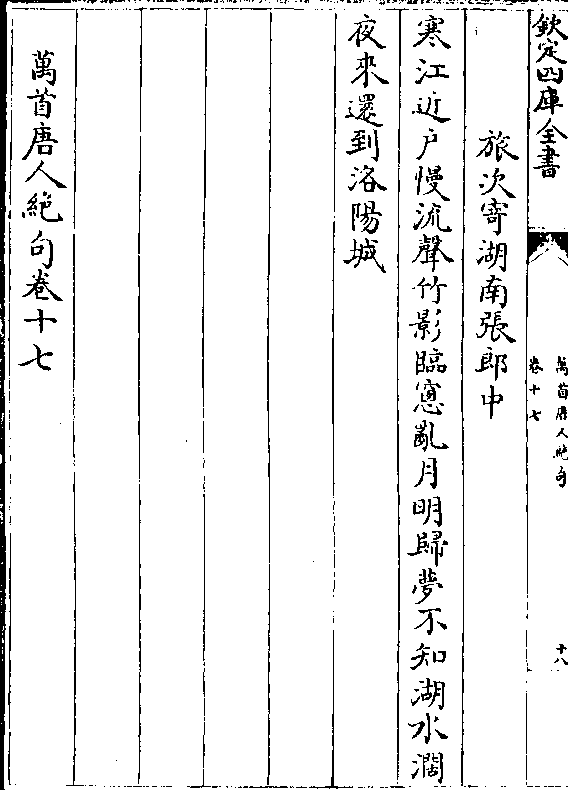 欽定四庫全書
萬首唐人絶句
卷十七
十八
旅次寄湖南張郎中
寒江近户慢流聲竹影臨窻亂月明歸夢不知湖水濶
夜來還到洛陽城
萬首唐人絶句卷十七